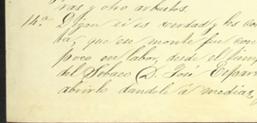 ras y otro arbules.
14ª. Digan si es verdad y les cons
ta, que en monte fue con
poco en labor, desde el tiem
del Sobaco D. José Espar
abrirlo dandole á medias,